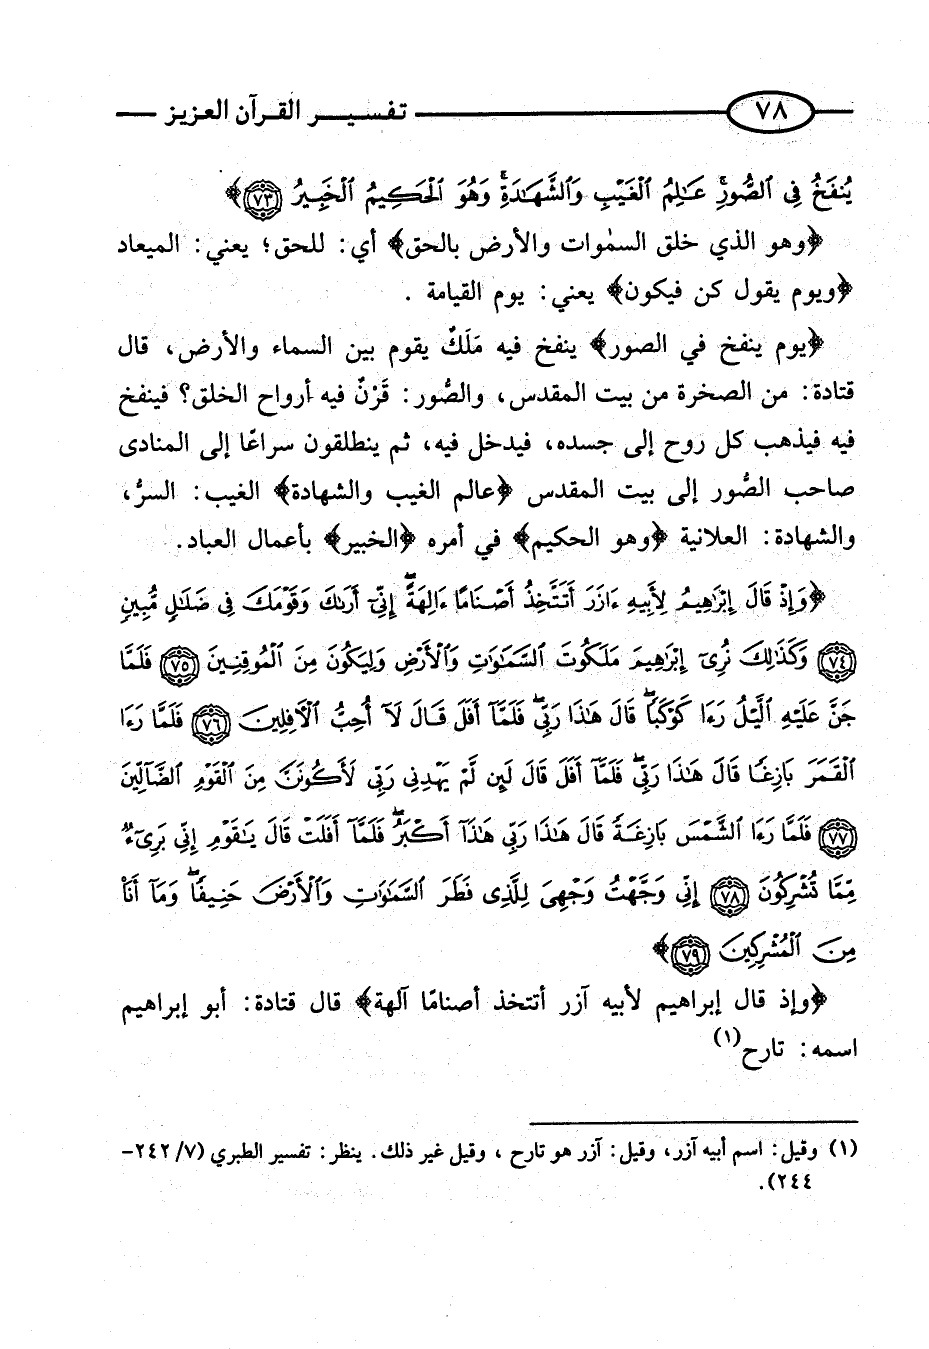 ٧٨ تفسير القرآن العزيز
يُنفَخُ فِي ٱلصُّورِۚ عَـٰلِمُ ٱلْغَيْبِ وَٱلشَّهَـٰدَةِۚ وَهُوَ ٱلْحَكِيمُ ٱلْخَبِيرُ ﴿٧٣﴾﴾
﴿وهو الذي خلق السمٰوات والأرض بالحق﴾ أي: للحق؛ يعني: الميعاد
﴿ويوم يقول كن فيكون﴾ يعني: يوم القيامة .
﴿يوم ينفخ في الصور﴾ ينفخ فيه مَلَكٌ يقوم بين السماء والأرض، قال
قتادة: من الصخرة من بيت المقدس، والصُّور: قَرْنٌ فيه أرواح الخلق؟ فينفخ
فيه فيذهب كل روح إلى جسده، فيدخل فيه، ثم ينطلقون سراعًا إلى المنادى
صاحب الصُّور إلى بيت المقدس ﴿عالم الغيب والشهادة﴾ الغيب: السرُّ،
والشهادة: العلانية ﴿وهو الحكيم﴾ في أمره ﴿الخبير﴾ بأعمال العباد.
﴿وَإِذْ قَالَ إِبْرَٰهِيمُ لِأَبِيهِ ءَازَرَ أَتَتَّخِذُ أَصْنَامًا ءَالِهَةًۖ إِنِّيٓ أَرَىٰكَ وَقَوْمَكَ فِي ضَلَـٰلٍ مُّبِينٍ
﴿٧٤﴾ وَكَذَٰلِكَ نُرِيٓ إِبْرَٰهِيمَ مَلَكُوتَ ٱلسَّمَـٰوَٰتِ وَٱلْأَرْضِ وَلِيَكُونَ مِنَ ٱلْمُوقِنِينَ ﴿٧٥﴾ فَلَمَّا
جَنَّ عَلَيْهِ ٱلَّيْلُ رَءَا كَوْكَبًاۖ قَالَ هَـٰذَا رَبِّيۖ فَلَمَّآ أَفَلَ قَالَ لَآ أُحِبُّ ٱلْـَٔافِلِينَ ﴿٧٦﴾ فَلَمَّا رَءَا
ٱلْقَمَرَ بَازِغًا قَالَ هَـٰذَا رَبِّيۖ فَلَمَّآ أَفَلَ قَالَ لَئِن لَّمْ يَهْدِنِي رَبِّي لَأَكُونَنَّ مِنَ ٱلْقَوْمِ ٱلضَّآلِّينَ
﴿٧٧﴾ فَلَمَّا رَءَا ٱلشَّمْسَ بَازِغَةً قَالَ هَـٰذَا رَبِّي هَـٰذَآ أَكْبَرُۖ فَلَمَّآ أَفَلَتْ قَالَ يَـٰقَوْمِ إِنِّي بَرِيٓءٌ
مِّمَّا تُشْرِكُونَ ﴿٧٨﴾ إِنِّي وَجَّهْتُ وَجْهِيَ لِلَّذِي فَطَرَ ٱلسَّمَـٰوَٰتِ وَٱلْأَرْضَ حَنِيفًاۖ وَمَآ أَنَا۠
مِنَ ٱلْمُشْرِكِينَ ﴿٧٩﴾﴾
﴿وإذ قال إبراهيم لأبيه آزر أتتخذ أصنامًا آلهة﴾ قال قتادة: أبو إبراهيم
اسمه: تارح(١)
(١) وقيل: اسم أبيه آزر، وقيل: آزر هو تارح ، وقيل غير ذلك. ينظر: تفسير الطبري (٧/ ٢٤٢-
٢٤٤).